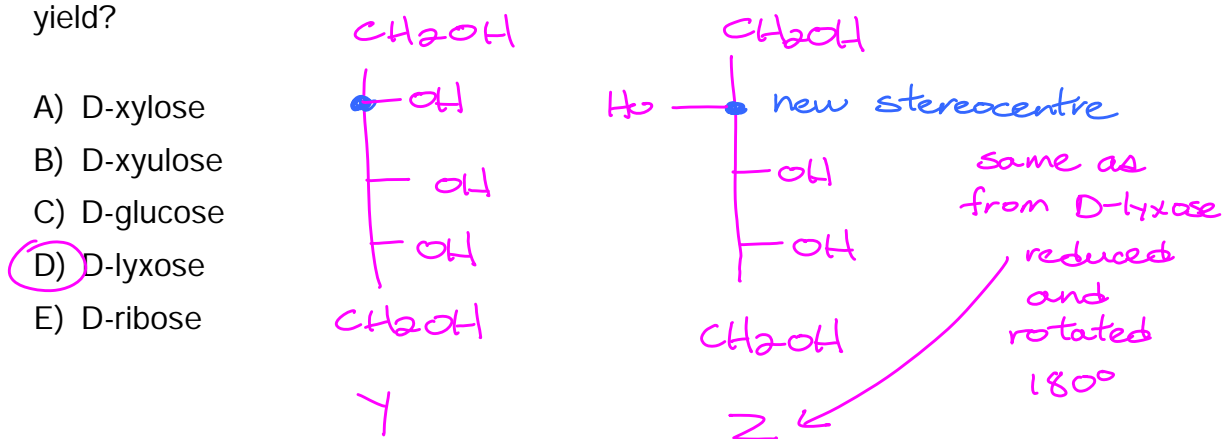 yield?
A) D-xylose
B) D-xyulose
C) D-glucose
D) D-lyxose
E) D-ribose
CH2OH
OH
OH
OH
CH2OH
Y
CH2OH
HO
new stereocentre
OH
OH
CH2OH
Z
same as
from D-lyxose
reduced
and
rotated
180°